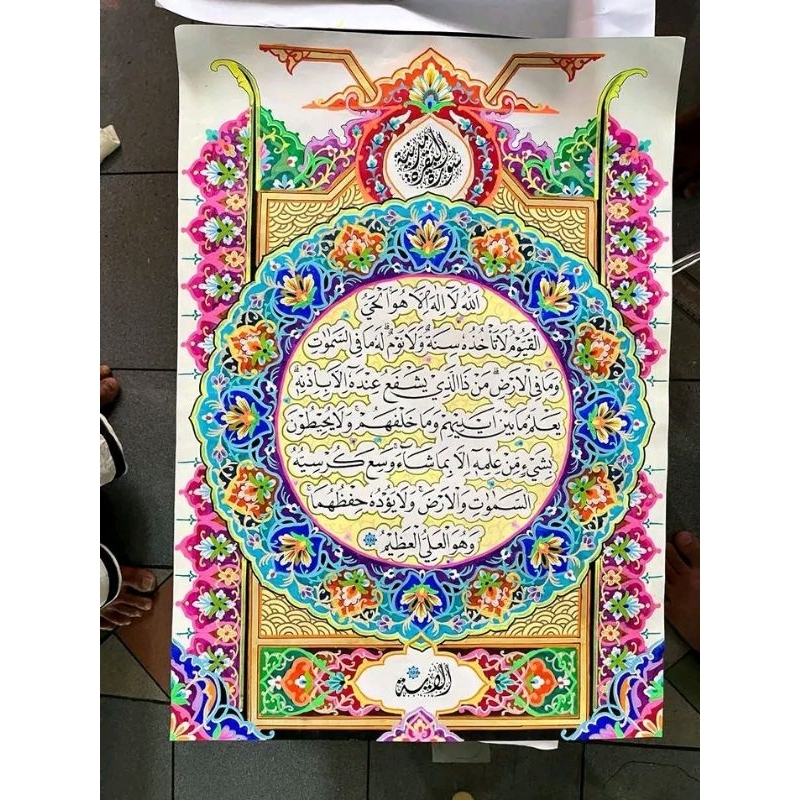 سورة البقرة مدنية
اَللّٰهُ لَآ اِلٰهَ اِلَّا هُوَ الْحَيُّ
الْقَيُّوْمُ ۚ لَا تَأْخُذُهٗ سِنَةٌ وَّلَا نَوْمٌ ۗ لَهٗ مَا فِى السَّمٰوٰتِ
وَمَا فِى الْاَرْضِ ۗ مَنْ ذَا الَّذِيْ يَشْفَعُ عِنْدَهٗٓ اِلَّا بِاِذْنِهٖ ۗ
يَعْلَمُ مَا بَيْنَ اَيْدِيْهِمْ وَمَا خَلْفَهُمْ ۚ وَلَا يُحِيْطُوْنَ
بِشَيْءٍ مِّنْ عِلْمِهٖٓ اِلَّا بِمَا شَاۤءَ ۚ وَسِعَ كُرْسِيُّهُ
السَّمٰوٰتِ وَالْاَرْضَ ۚ وَلَا يَـُٔوْدُهٗ حِفْظُهُمَا ۚ
وَهُوَ الْعَلِيُّ الْعَظِيْمُ
الآية